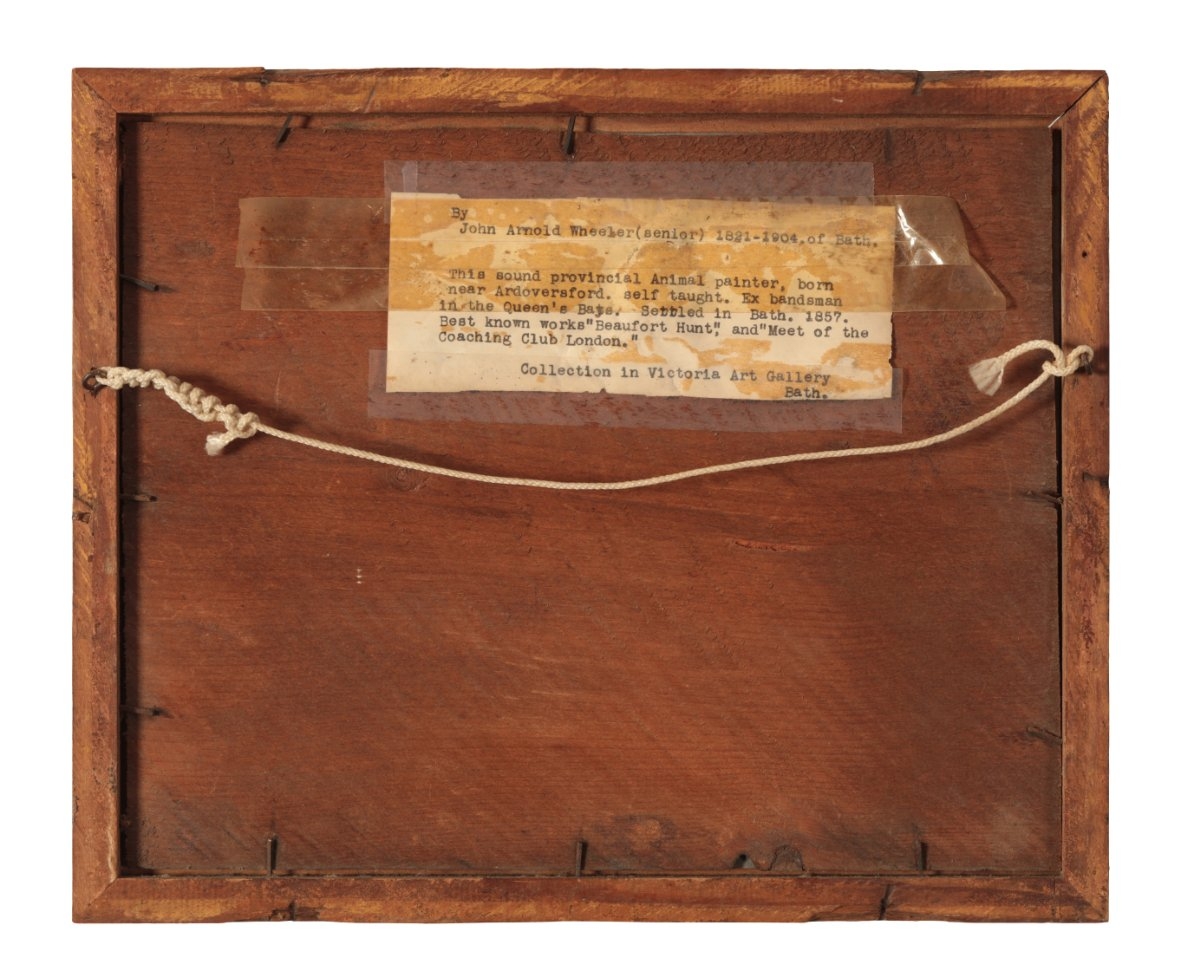 By
John Arnold Wheeler(senior) 1821-1904.of Bath.
This sound provincial Animal painter, born
near Ardoversford. self taught. Ex bandsman
in the Queen's Bays. Settled in Bath. 1857.
Best known works"Beaufort Hunt", and"Meet of the
Coaching Club London."
Collection in Victoria Art Gallery
Bath.